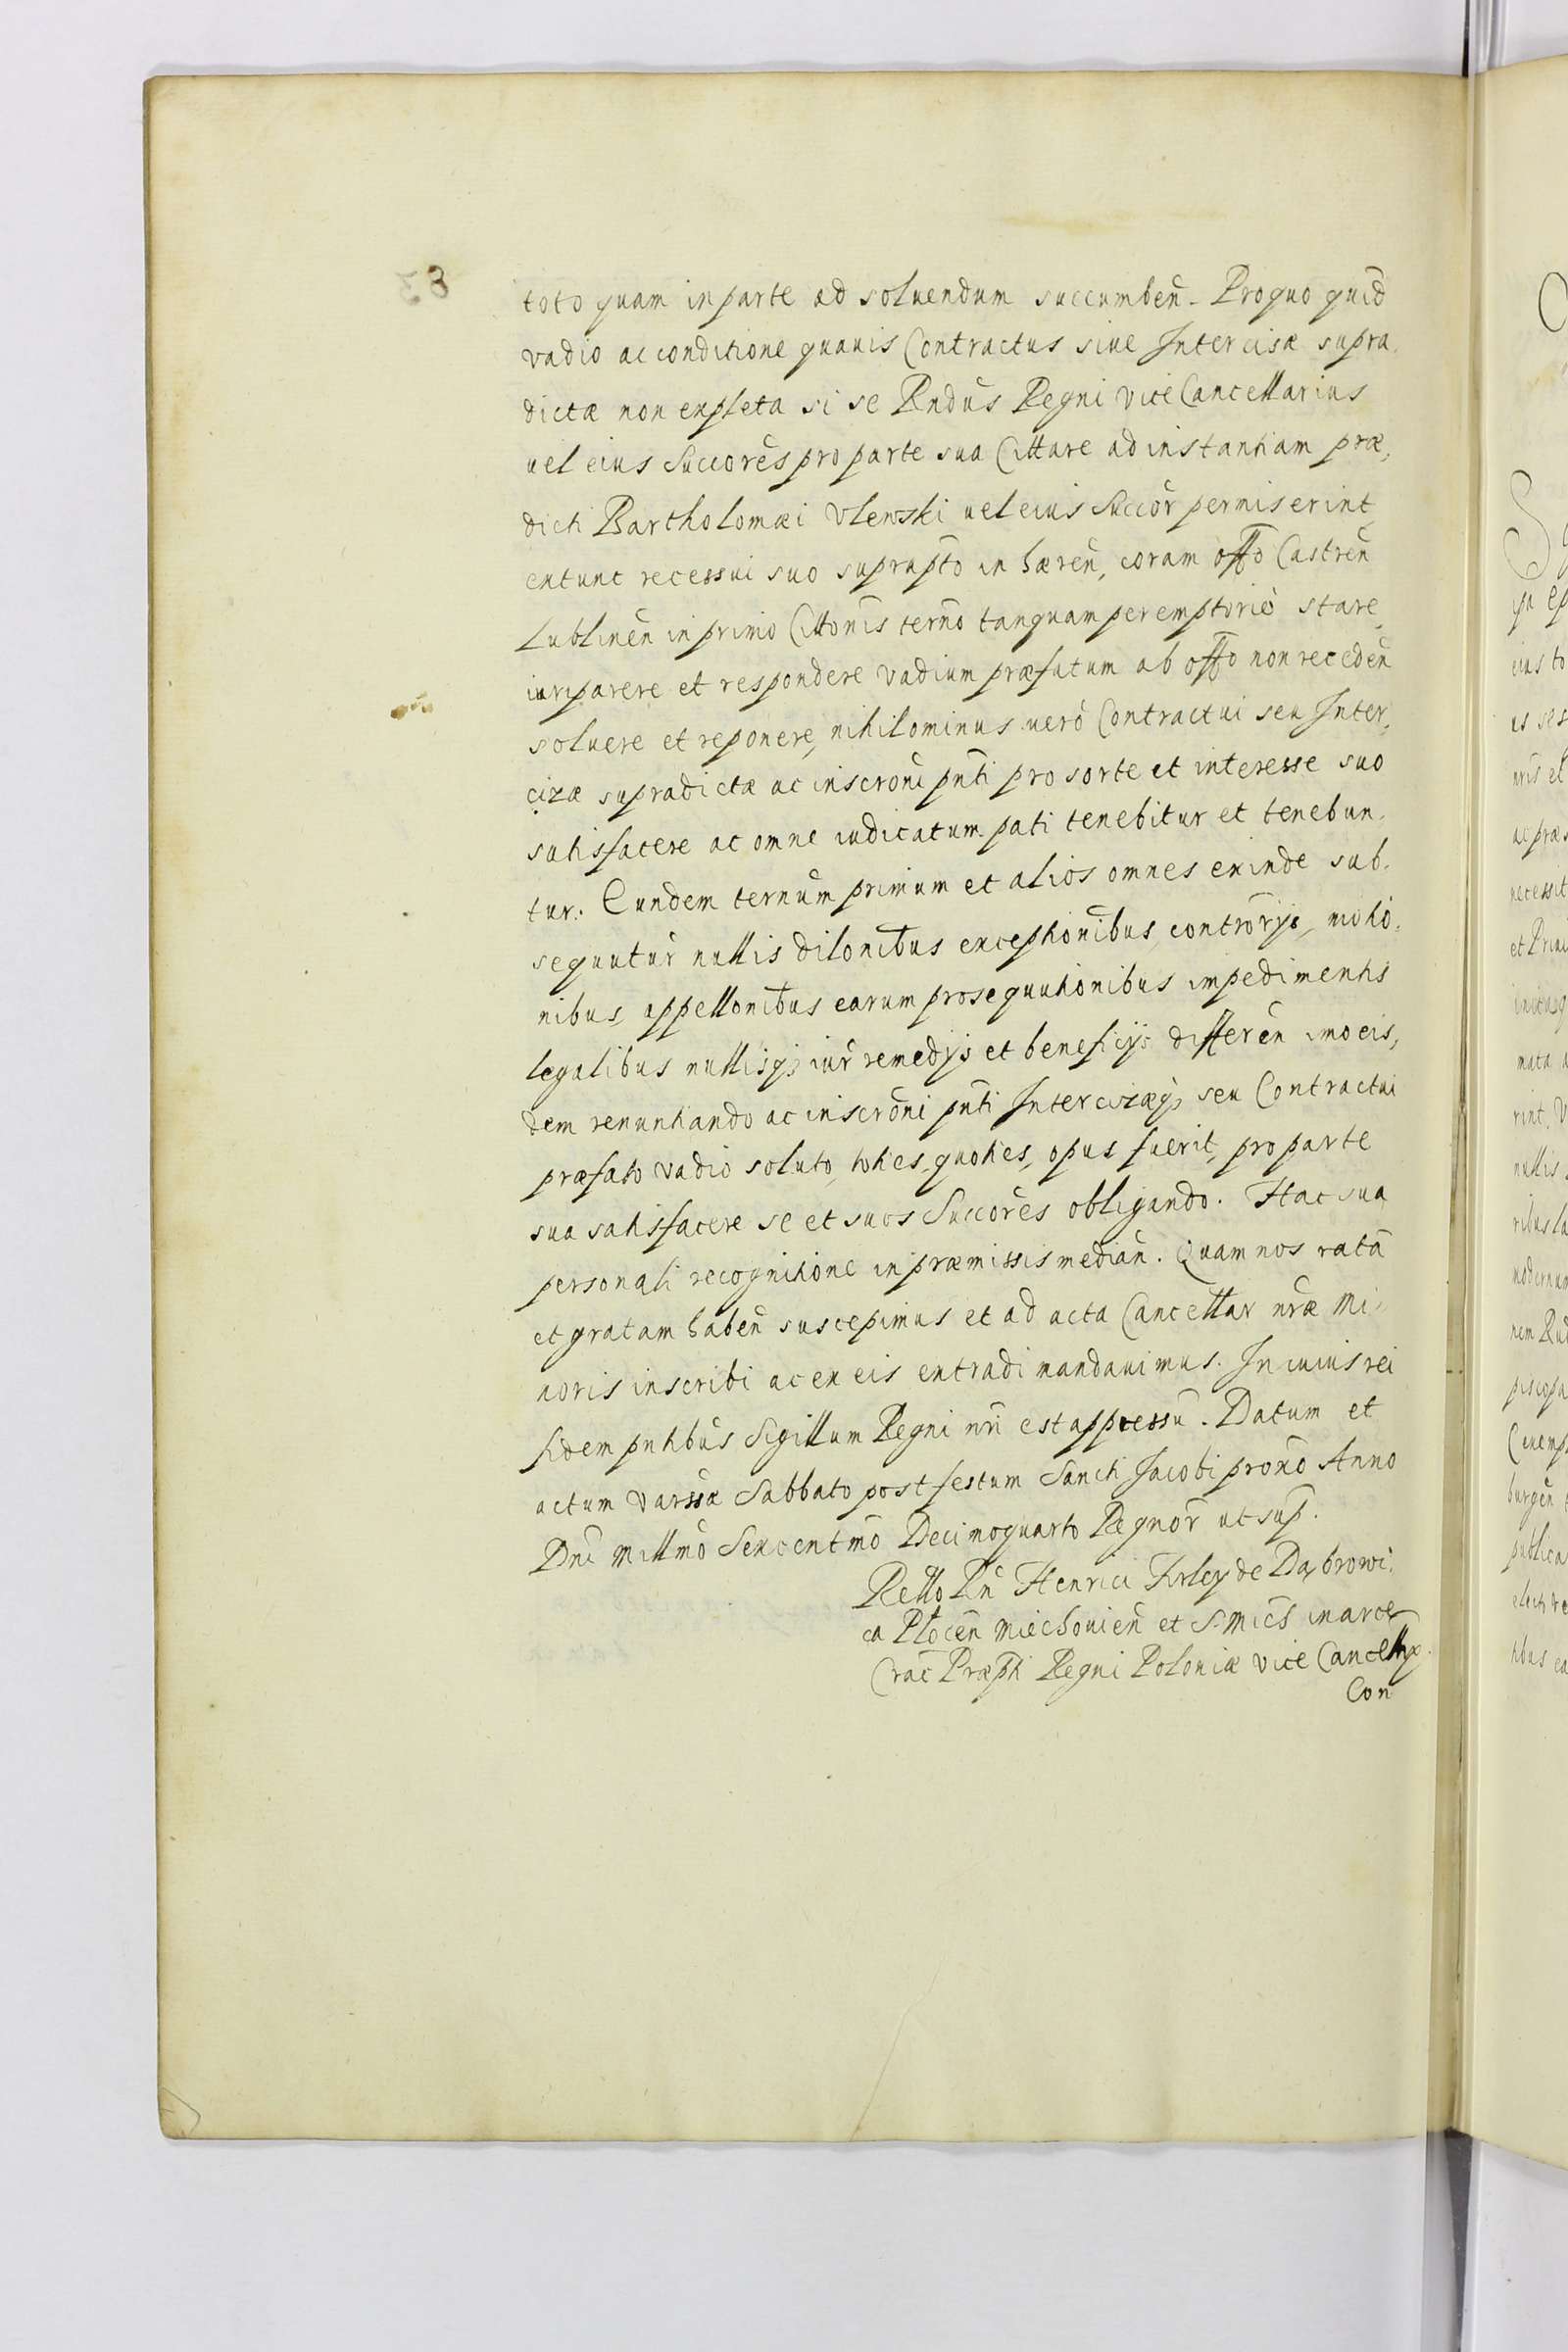 toto quam in parte ad soluendum succumbeñ. Pro quo quid̃
vadio ac conditione quauis Contractus siue Intercisæ supra,
dictæ non expleta si se Rndũs Regni vice Cancellarius
uel eius Succorẽs pro parte sua Cittare ad instantiam præ,
dicti Bartholomæi Vlewski uel eius Succor̃ permiserint
extunc recessui suo suprapto in hæreñ, coram offo Castreñ
Lublineñ in primo Cittonis termo tanquam peremptoriè stare
iuri parere et respondere vadium præfatum ab offo non recedeñ
soluere et reponere, nihilominus uerò Contractui seu Inter,
cizæ supradictæ ac inscroni pnti pro sorte et interesse suo
satisfacere ac omne iudicatum pati tenebitur et tenebun,
tur. Eundem ternum primum et alios omnes exinde sub,
sequutur̃ nullis dilonibus exceptionibus, contrõrijs, motio,
nibus, appellonibus earum prosequutionibus impedimentis
legalibus nullisq; iur̃ remedijs et beneficijs differeñ imo eis,
dem renuntiando ac inscroni pnti Intercizæq; seu Contractui
præfato vadio soluto, toties, quoties, opus fuerit, pro parte
sua satisfacere se et suos Succorẽs obligando. Hac sua
personali recognitione in præmissis median̄. Quam nos ratã
et gratam habeñ suscepimus et ad acta Cancellar nræ Mi,
noris inscribi ac ex eis extradi mandauimus. In cuius rei
fidem pntibus Sigillum Regni nri est appressũ. Datum et
actum Varssæ Sabbato post festum Sancti Jacobi proxõ Anno
Dni Millmo Sexcentmo Decimoquarto Regnor̃ ut sup̃.
Rello Rñ Henrici Firley de Dąbrowi,
ca Plõceñ Miechouieñ et S. Mich̃ in arce
Crac̃ Præpti Regni Poloniæ vice Cancellrij.
Con